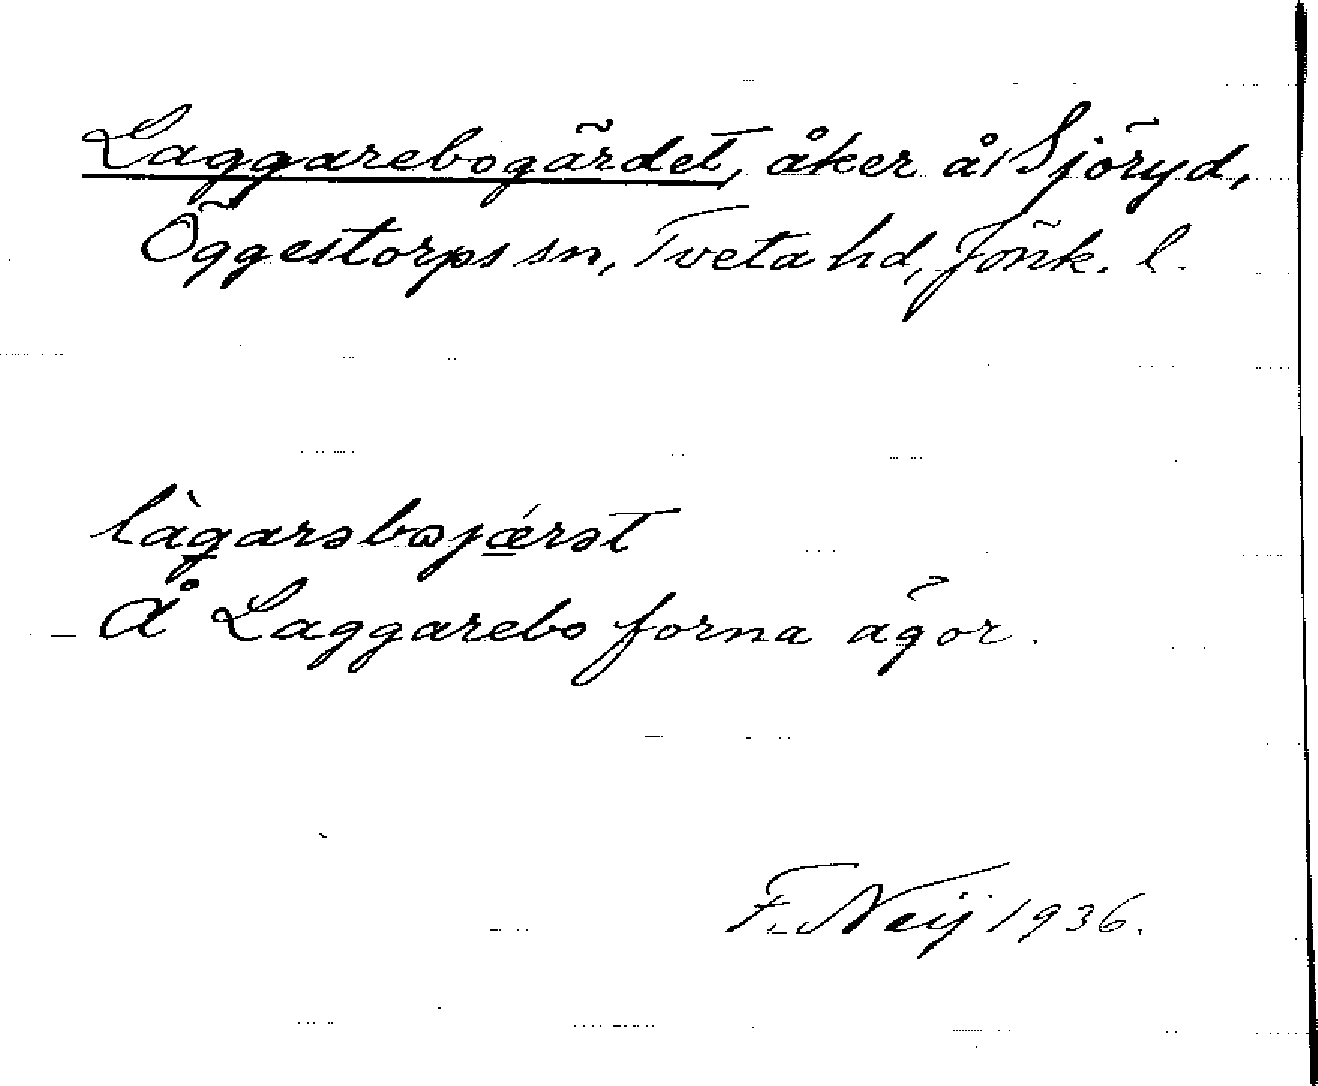 Laggarebogärdet, åker å Sjöryd,
Öggestorps sn, Tveta hd, Jönk. l.
làgarəbɷjǽrət
Å Laggarebo forna ägor.
F. Neij 1936.